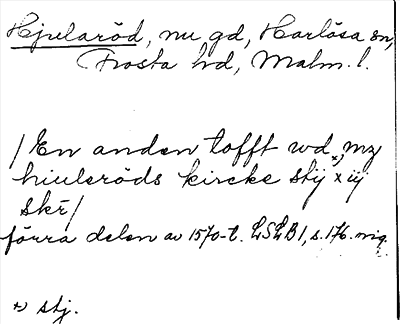 Hjularöd, nu gd, Harlösa sn,
Frosta hd, Malm. l.
/En anden tofft wd x), mz
hiuleröds kircke stij x iij
skr̄/
förra delen av 1570-t. LSLB1, s. 176. orig.
x) stj.